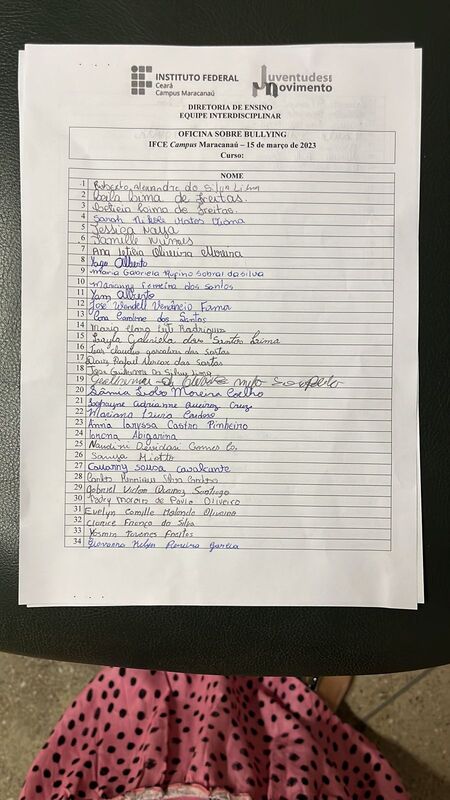 INSTITUTO FEDERAL
Ceará
Campus Maracanaú
Juventudes em
Movimento
DIRETORIA DE ENSINO
EQUIPE INTERDISCIPLINAR
OFICINA SOBRE BULLYING
IFCE Campus Maracanaú – 15 de março de 2023
Curso:
NOME
1 Roberto Alexandre da Silva Lima
2 Lima de Freitas.
3 Leticia Lima de Freitas.
4 Sarah Nikole Matos
5 Jessica
6 Kamille Nunes
7 Ana Letícia Oliveira Moreira
8 Yago Alberto
9 Maria Gabriela Rufino Sobral da silva
10 Marianne Ferreira dos santos
11 Yam Alberto
12 José Wendell Venâncio
13 Caroline dos Santos
14 Maria Clara Rodrigues
15 Layla Gabriela dos Santos Lima
16 claudio gonsalves dos santos
17 Rafael dos Santos
18 Guilherme da Silva
19 Guilherme
20 Sâmia Lobo Moreira Coelho
21 adrianne queiroz Cruz
22 Mariana Cardoso
23 Anna Laryssa Castro Pinheiro
24 Lorena Abigarina
25 Nandini Devidasi Gomes
26 Samya
27 Cauanny sousa cavalcante
28 Carlos Henrique Silva
29 Gabriel Victor Queiroz Santiago
30 Moreira de Oliveira
31 Evelyn Camille Holanda Oliveira
32 Clarice França da Silva
33 Yasmin Tavares Freitas
34 Giovanna Pereira Garcia